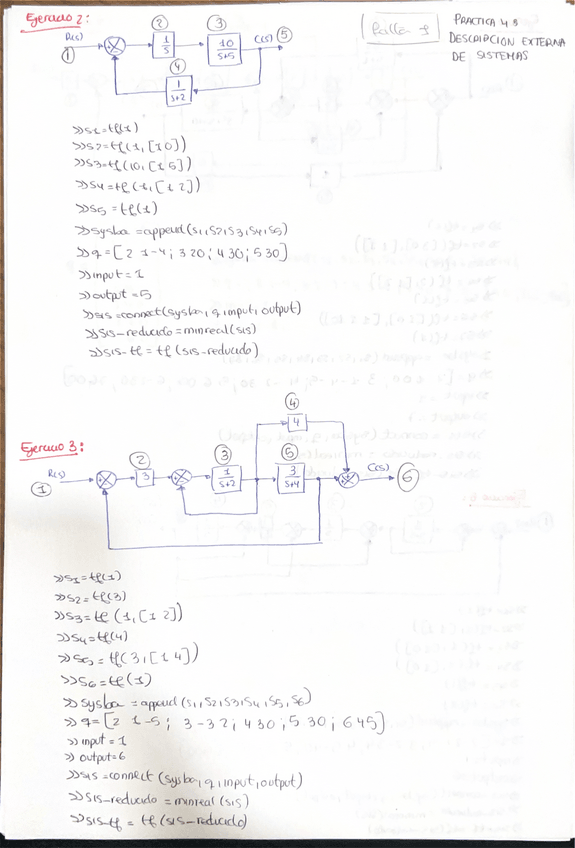 Ejercicio 2:
Taller 3
PRACTICA 4 B
DESCRIPCION EXTERNA
DE SISTEMAS
R(s) 1 2 1/s 3 10/s+5 C(s) 5
4 1/s+2
>>S1=tf(1)
>>S2=tf(1,[10])
>>S3=tf(10,[15])
>>S4=tf(1,[12])
>>S5=tf(1)
>>sysba=append(S1,S2,S3,S4,S5)
>>q=[2 1-4; 3 20; 4 30; 5 30]
>>input=1
>>output=5
>>sis=connect(sysba,q,input,output)
>>sis-reducido=minreal(sis)
>>sis-tf=tf(sis-reducido)
Ejercicio 3:
4 4
R(s) 1 2 3 3 1/s+2 5 3/s+4 C(s) 6
>>S1=tf(1)
>>S2=tf(3)
>>S3=tf(1,[1 2])
>>S4=tf(4)
>>S5=tf(3,[1 4])
>>S6=tf(1)
>>sysba=append(S1,S2,S3,S4,S5,S6)
>>q=[2 1-5; 3-32; 4 30; 5 30; 6 4 5]
>>input=1
>>output=6
>>sis=connect(sysba,q,input,output)
>>sis-reducido=minreal(sis)
>>sis-tf=tf(sis-reducido)